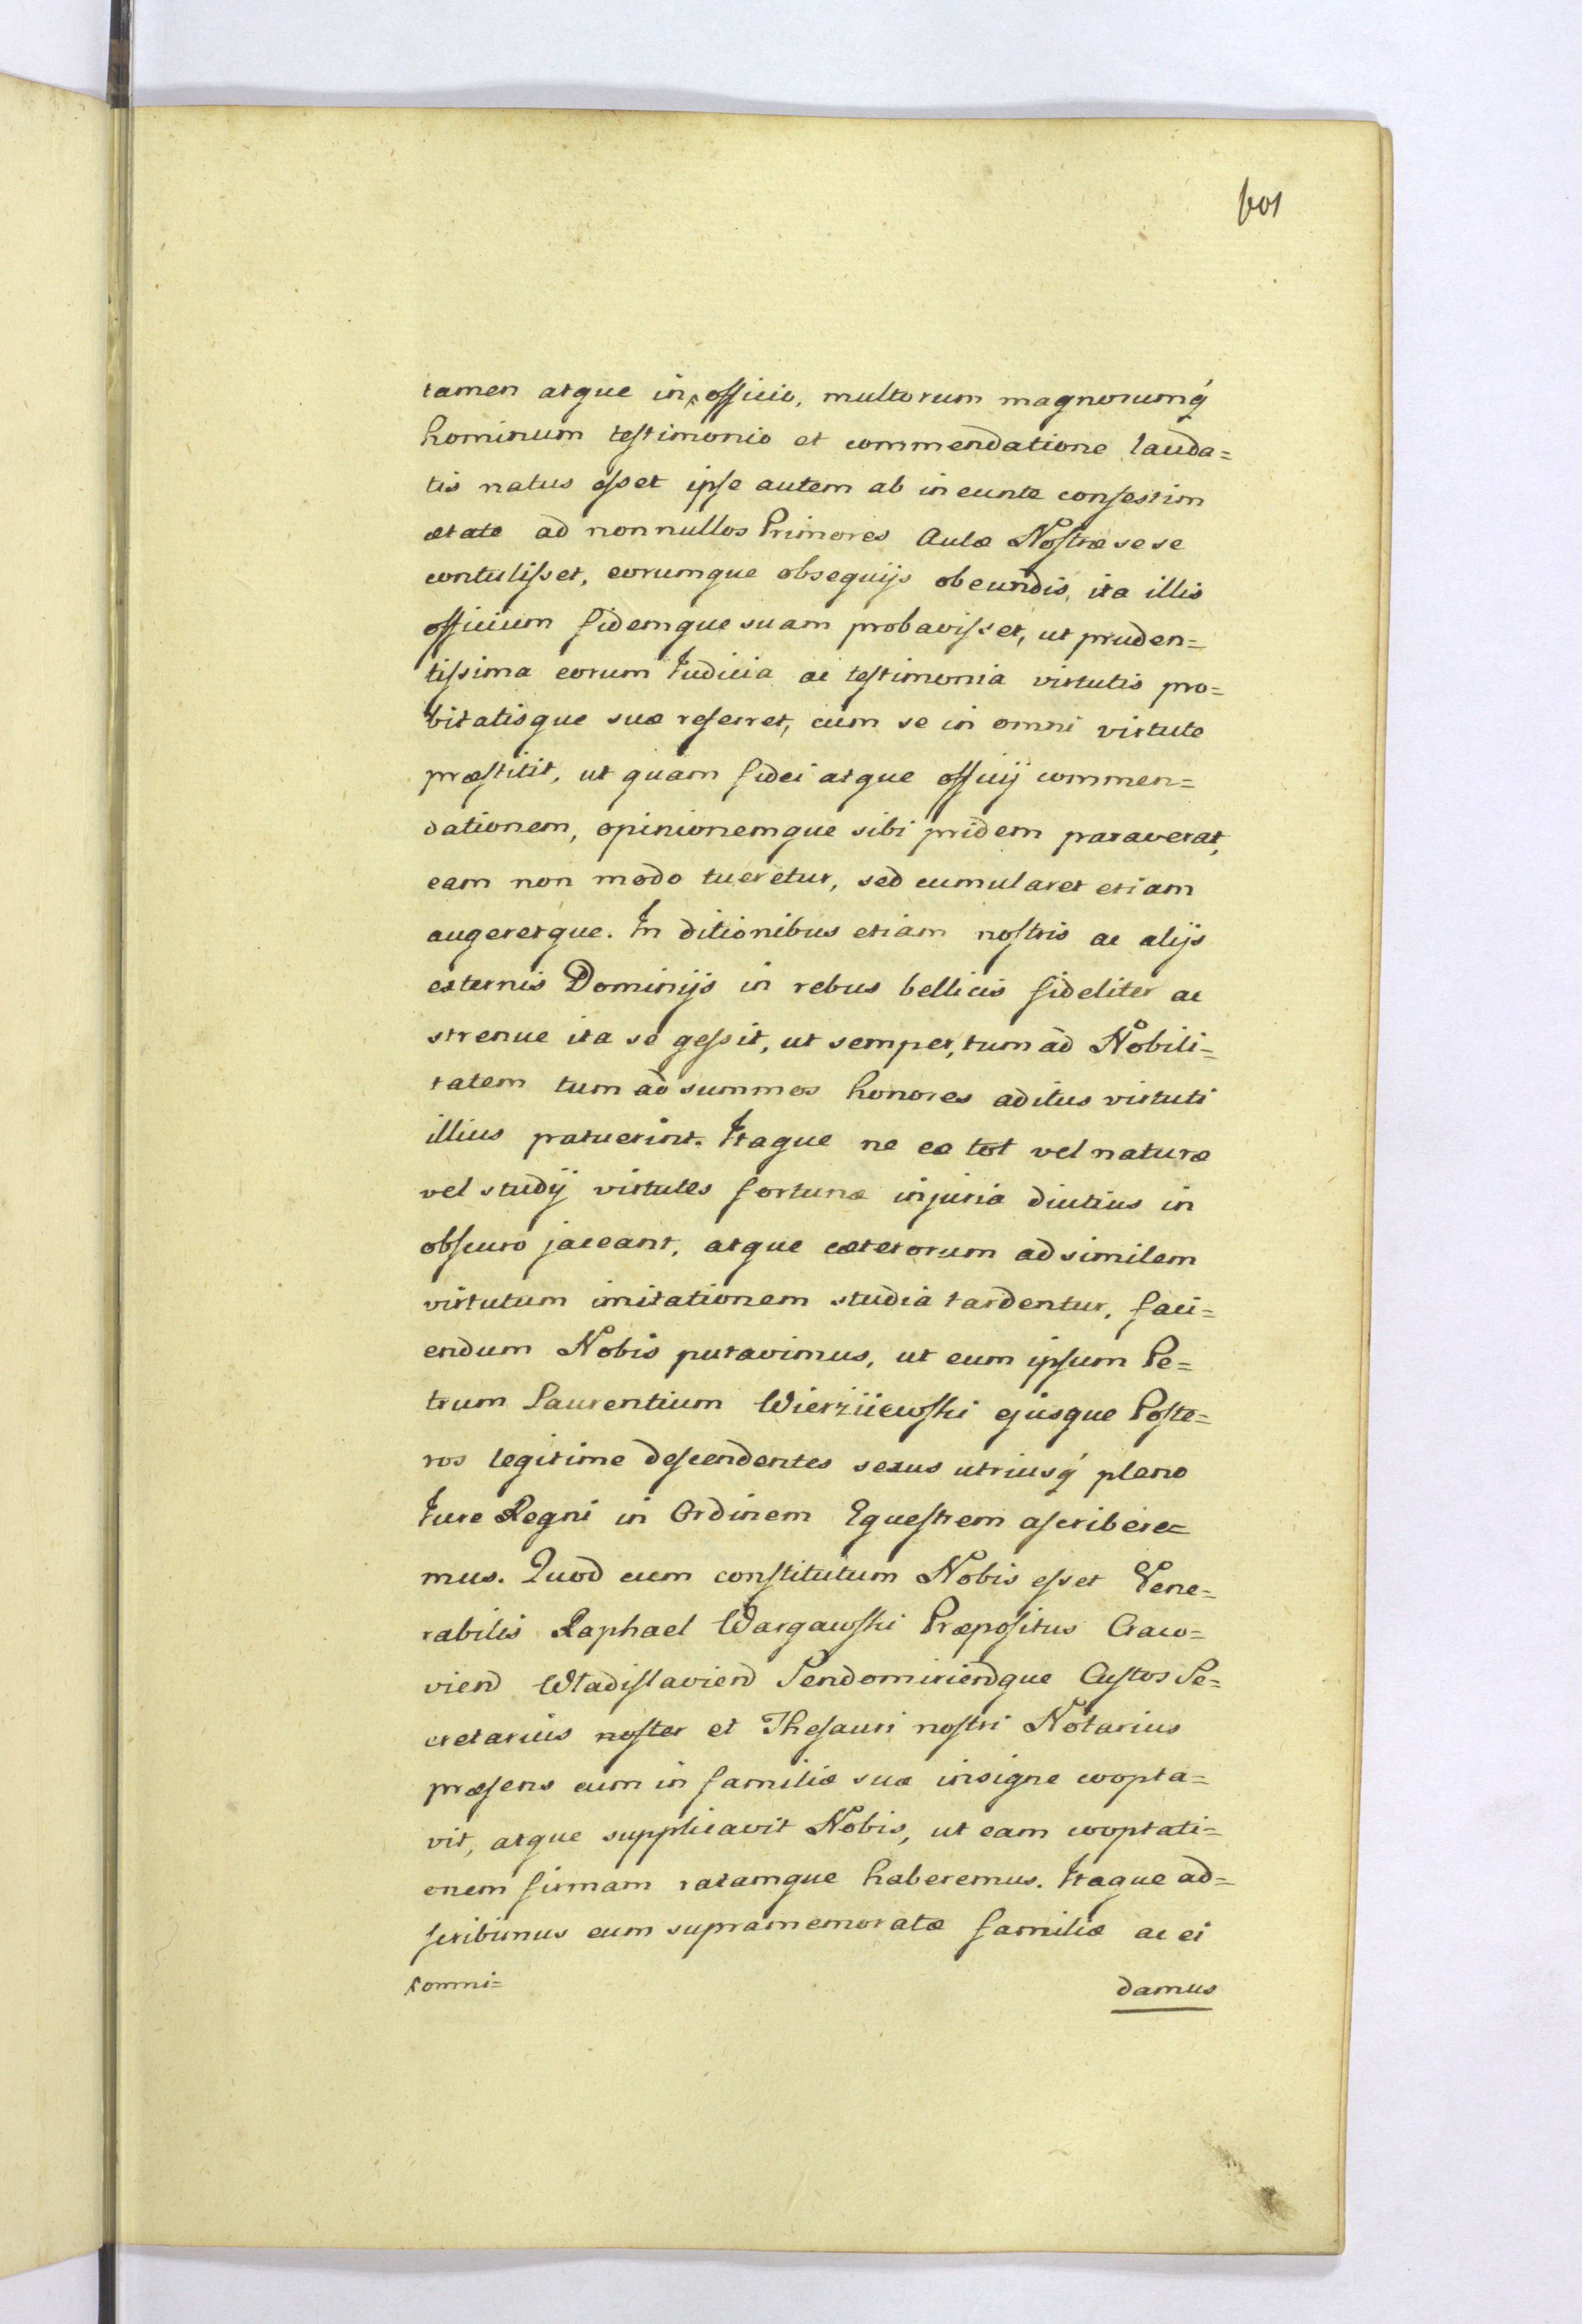 601
tamen atque in ⁁ officio, multorum magnorumq́
hominum testimonio et commendatione lauda=
tis natus esset ipse autem ab in eunte confestim
ætate ad nonnullos Primores Aulæ Nostræ sese
contulisset, eorumque obsequijs obeundis, ita illis
officium fidemque suam probavisset, ut pruden=
tissima eorum Iudicia ac testimonia virtutis pro=
bitatisque suæ referret, cum se in omni virtute
præstitit, ut quam fidei atque officij commen=
dationem, opinionemque sibi pridem paraverat,
eam non modo tueretur, sed cumularet etiam
augeretque. In ditionibus etiam nostris ac alijs
externis Dominijs in rebus bellicis fideliter ac
strenue ita se gessit, ut semper, tum ad Nobili=
tatem tum ad summos honores aditus virtuti
illius patuerint. Itaque ne eæ tot vel naturæ
vel studij virtutes fortunæ injuria diutius in
obscuro jaceant, atque cæterorum ad similem
virtutum imitationem studia tardentur, faci=
endum Nobis putavimus, ut eum ipsum Pe=
trum Laurentium Wierziiewski ejusque Poste=
ros legitime descendentes sexus utriusq́ pleno
Iure Regni in Ordinem Equestrem ascribere=
mus. Quod cum constitutum Nobis esset Vene=
rabilis Raphael Wargawski Præpositus Craco=
viend Wladislaviend Sendomiriendque Custos Se=
cretarius noster et Thesauri nostri Notarius
præsens eum in familiæ suæ insigne coopta=
vit, atque supplicavit Nobis, ut eam cooptati=
onem firmam ratamque haberemus. Itaque ad=
scribimus eum supramemoratæ familiæ ac ei
⁁ omni=
damus